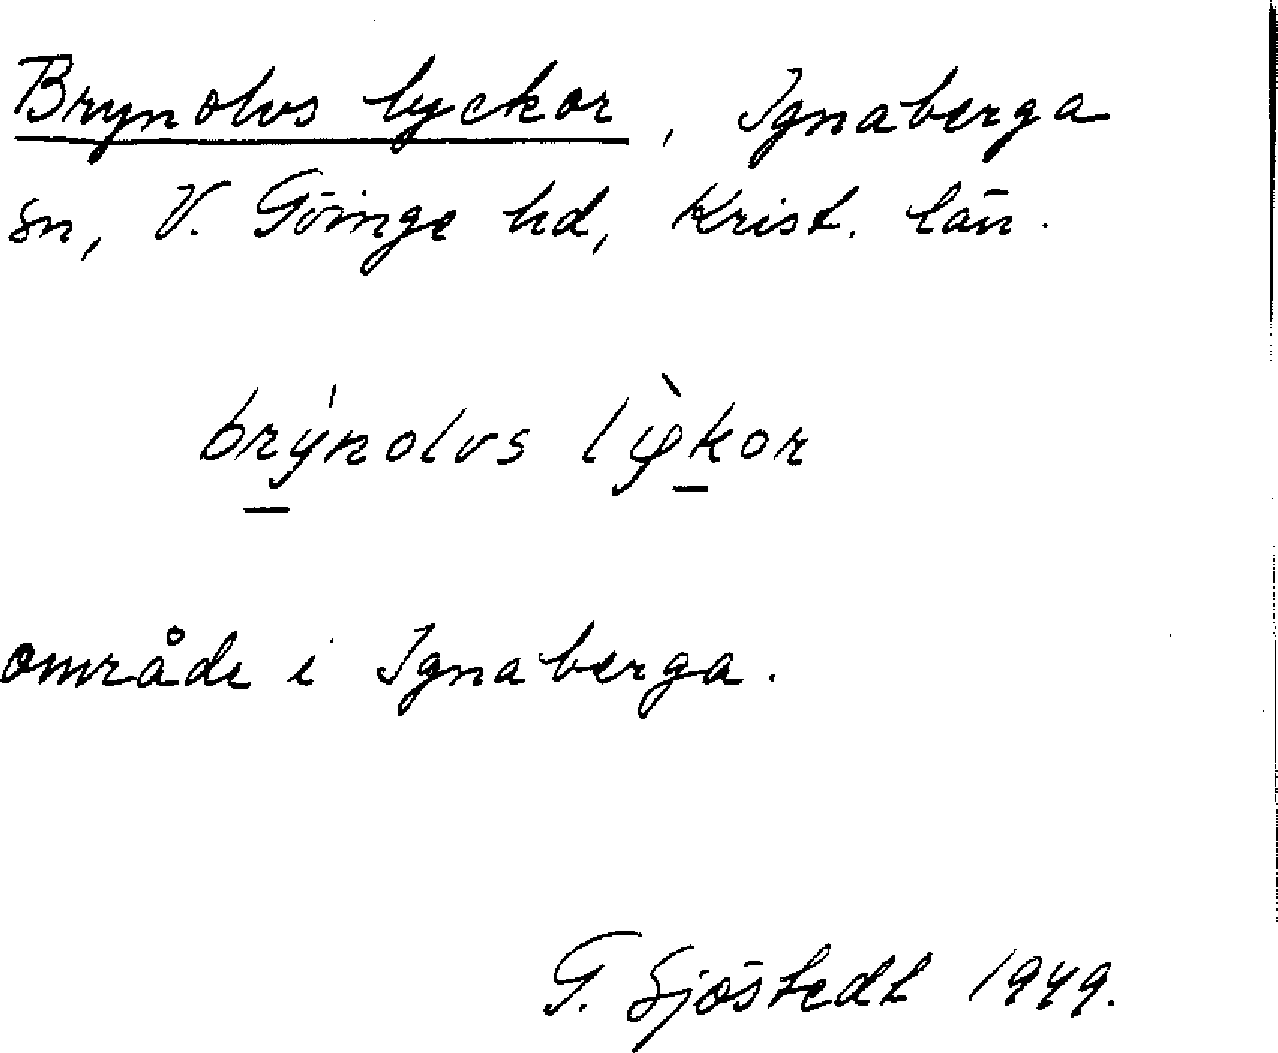 Brynolvs lyckor, Ignaberga
sn, V. Göinge hd, Krist. län.
brýnolvs lỳkor
område i Ignaberga.
G. Sjöstedt 1949.